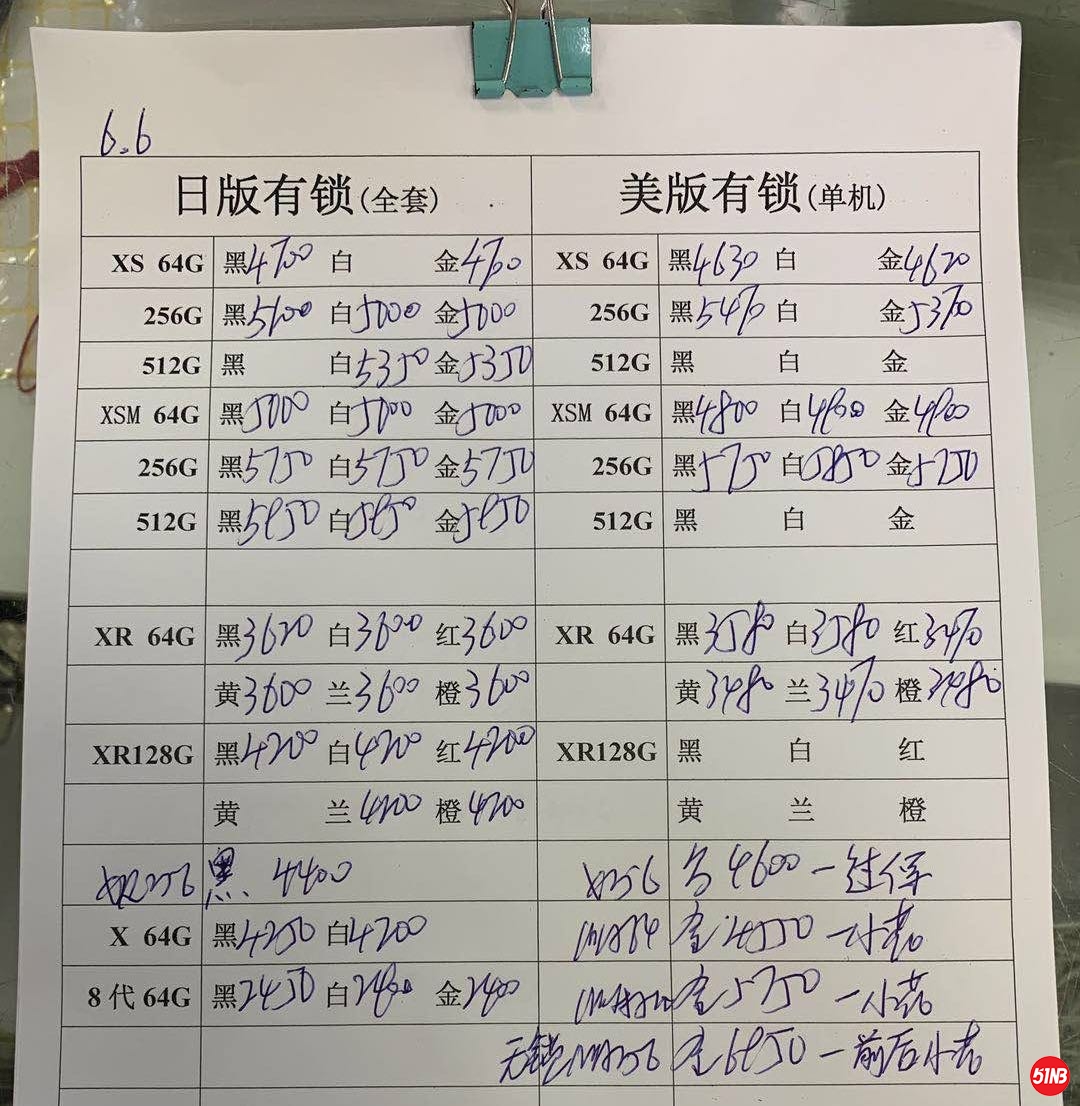 6.6
日版有锁(全套) 美版有锁(单机)
XS 64G 黑4700 白 金4700 XS 64G 黑4630 白 金4620
256G 黑5100 白5000 金5000 256G 黑5470 白 金5370
512G 黑 白5350 金5350 512G 黑 白 金
XSM 64G 黑5000 白5000 金5000 XSM 64G 黑4800 白4800 金4800
256G 黑5750 白5750 金5750 256G 黑5750 白5850 金5750
512G 黑5850 白5850 金5850 512G 黑 白 金
XR 64G 黑3620 白3600 红3600 XR 64G 黑3580 白3580 红3470
黄3600 兰3600 橙3600 黄3480 兰3470 橙3480
XR128G 黑4200 白4200 红4200 XR128G 黑 白 红
黄 兰4200 橙4200 黄 兰 橙
XR256 黑 4400 4600一过保
X 64G 黑4250 白4200 金4550一小花
8代64G 黑2450 白2400 金2400 金5750一小花
无锁 256 金6850一前后小花
51NB